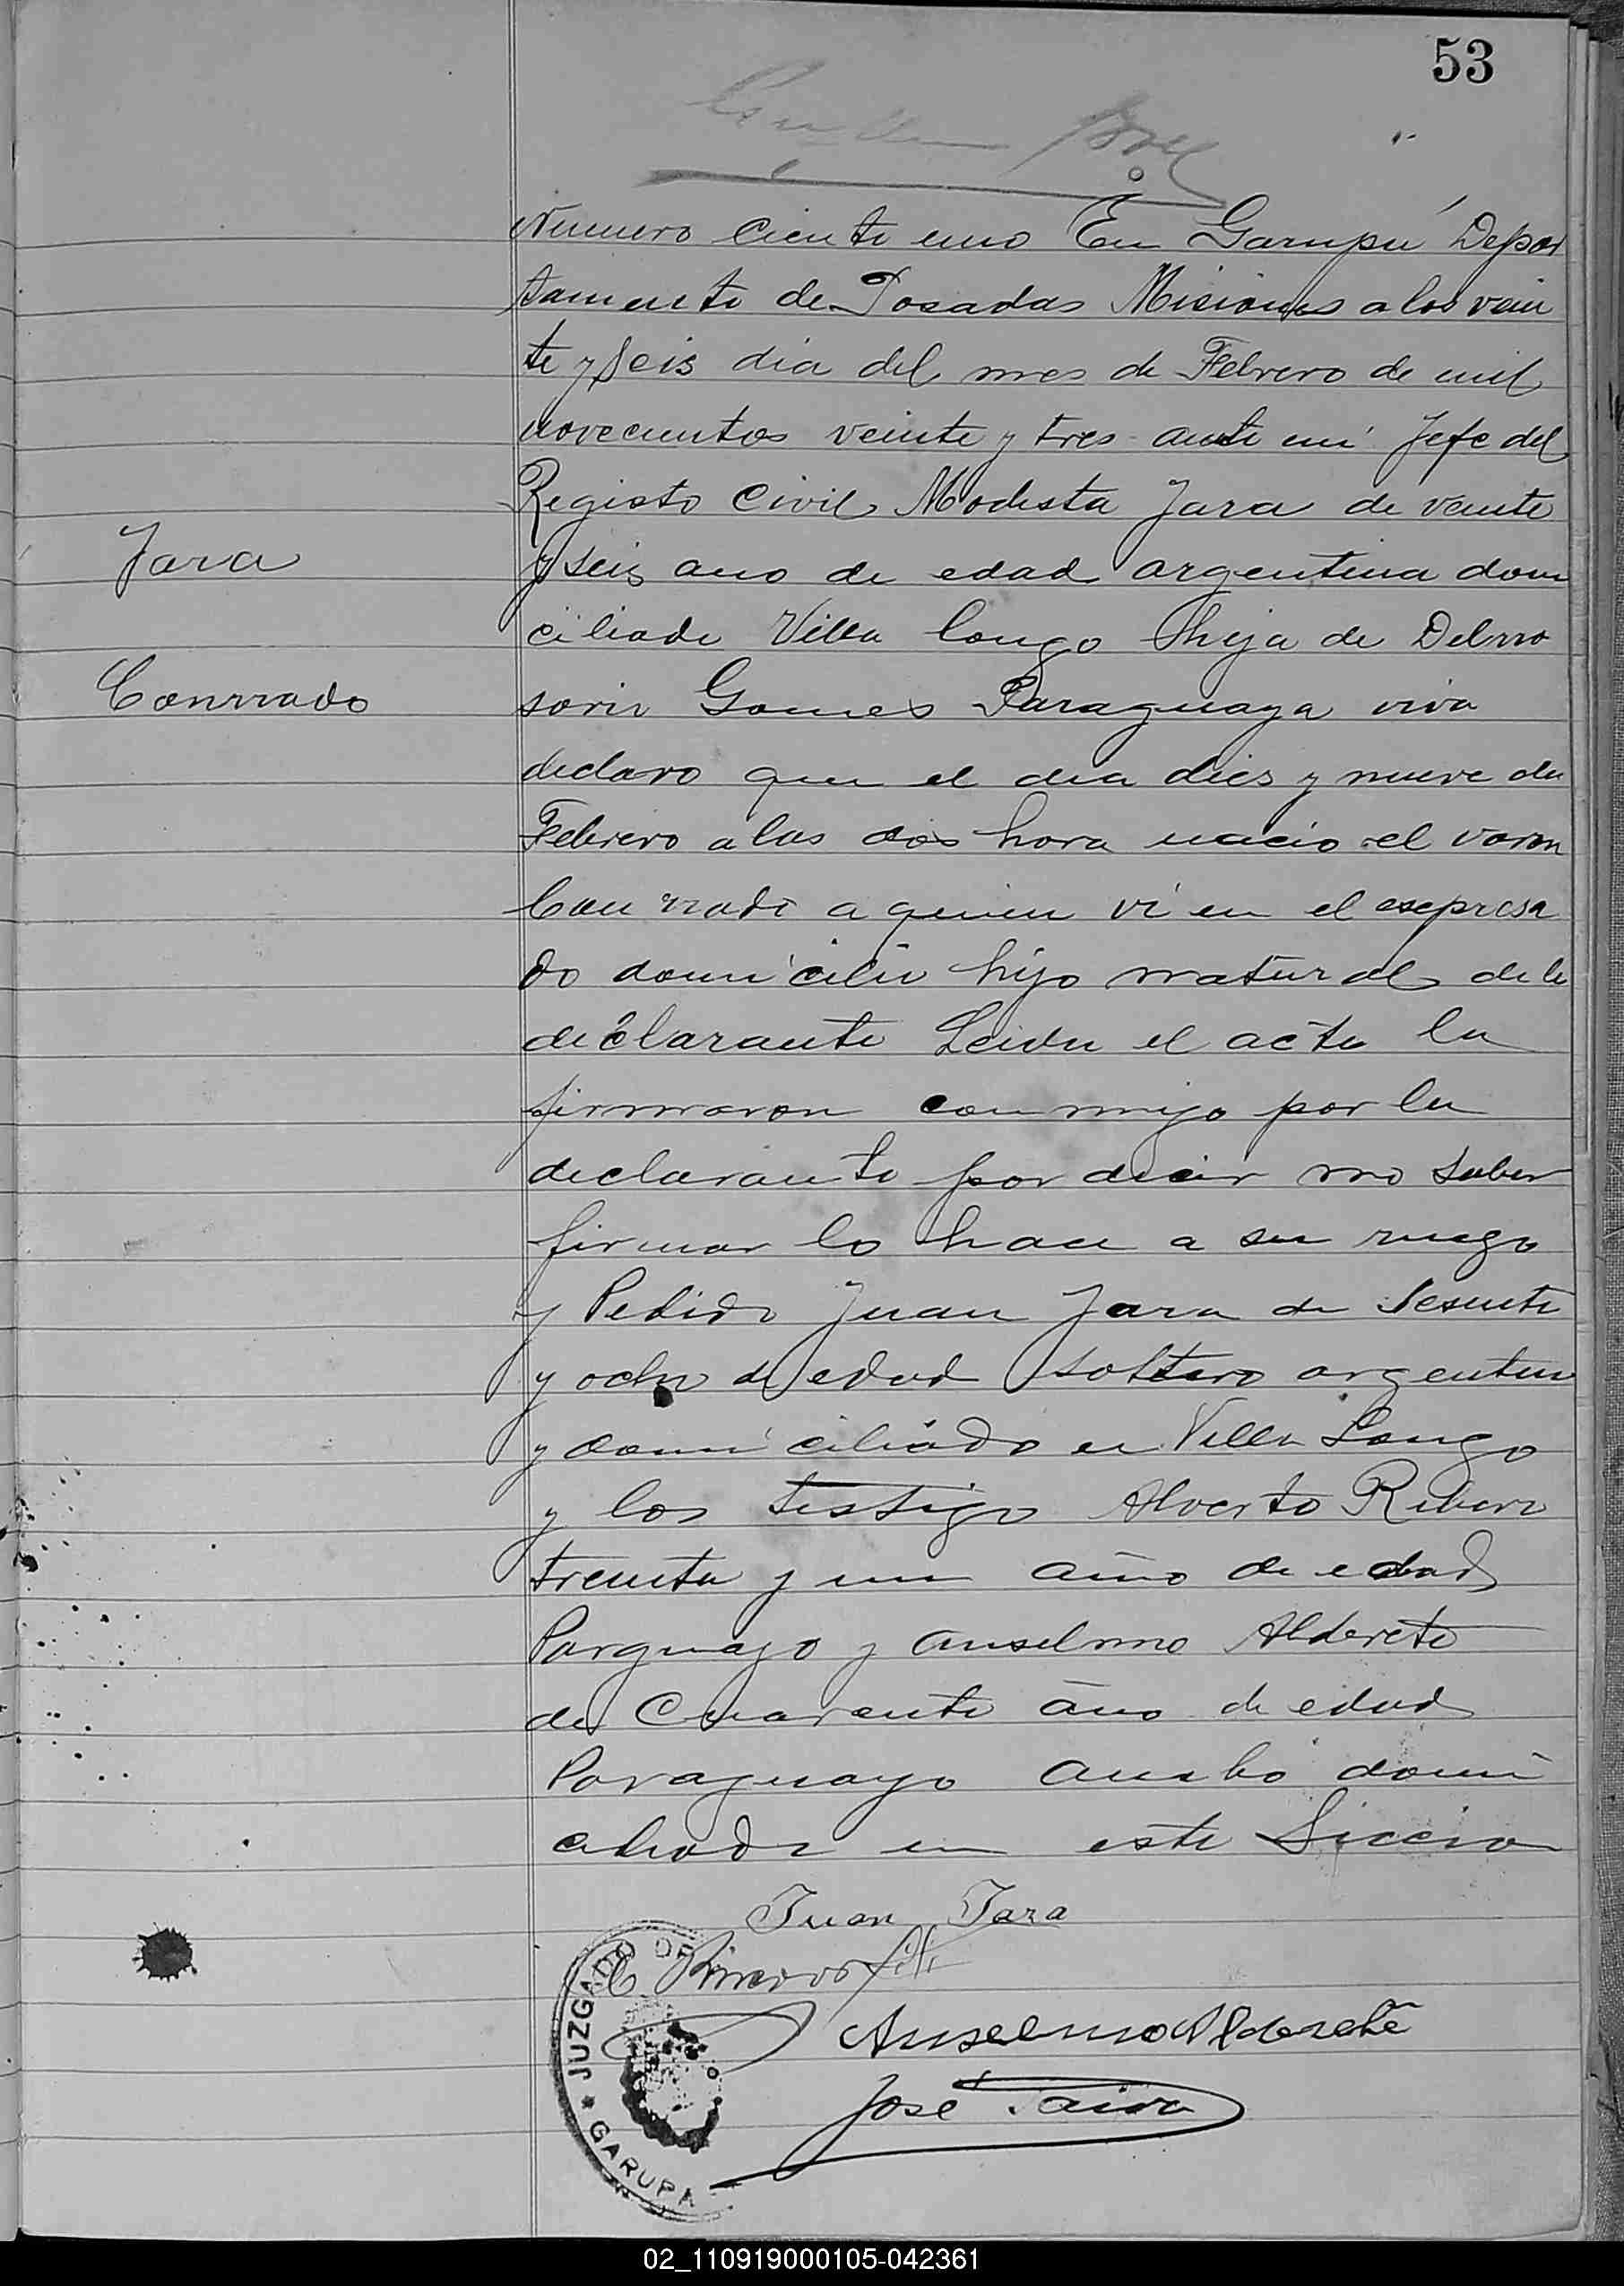 53
Numero ciento uno En Garupá Depar
tamento de Posadas Misiones a los vein
te y seis dia del mes de Febrero de mil
novecientos veinte y tres ante mi Jefe del
Registo Civil Modesta Jara de veinte
y seis ano de edad argentina domi
Jara
ciliada Villa Longo hija de Delro
Conrrado
saria Gomes Paraguaya viva
declaro que el dia dies y nueve de
Febrero a las dos hora nacio el varon
Conrrado a quien vi en el esepresa
do domicilio hijo natural de la
declarante Leida el acta la
firmaron conmigo por la
declarante por decir no saber
firmar lo hace a su ruego
y Pedido Juan Jara de Sesenta
y ocho de edad soltero argentino
y domiciliado en Villa Longo
y los testigo Alverto Rivero
treinta y un año de edad
Parguayo y Anselmo Alderete
de Cuarenta año de edad
Paraguayo ambo domi
ciliado en este Siccion
Juan Jara
Anselmo Alderete
José Paiva
JUZGADO DE
* GARUPA
02_110919000105-042361